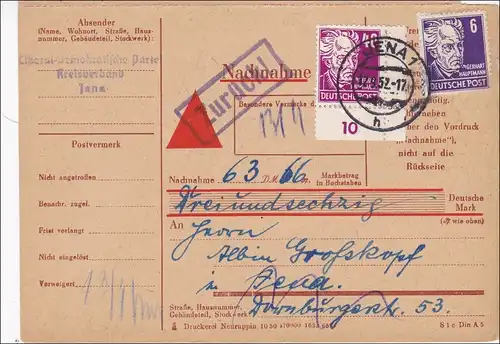 Absender
(Name, Wohnort, Straße, Haus-
nummer, Gebäudeteil, Stockwerk):
Liberal-Demokratische Partei
Kreisverband
Jena
Postvermerk
Nicht angetroffen
Benachr. zugel.
Frist verlangt
Nicht eingelöst
Verweigert
Nachnahme
Zurück
Besondere Vermerke
DEUTSCHE POST
10
JENA 1
h
6
GERHART
HAUPTMANN
DEUTSCHE POST
neben
über den Vordruck
(„Nachnahme"),
nicht auf die
Rückseite
Nachnahme 63 DM 66
Markbetrag
in Buchstaben
Dreiundsechzig
Deutsche
Mark
(wie oben)
An Herrn
Albin Großkopf
in Jena
Dornburgerstr. 53.
Straße, Hausnummer,
Gebäudeteil, Stockwerk
Druckerei Neuruppin
Din A 5